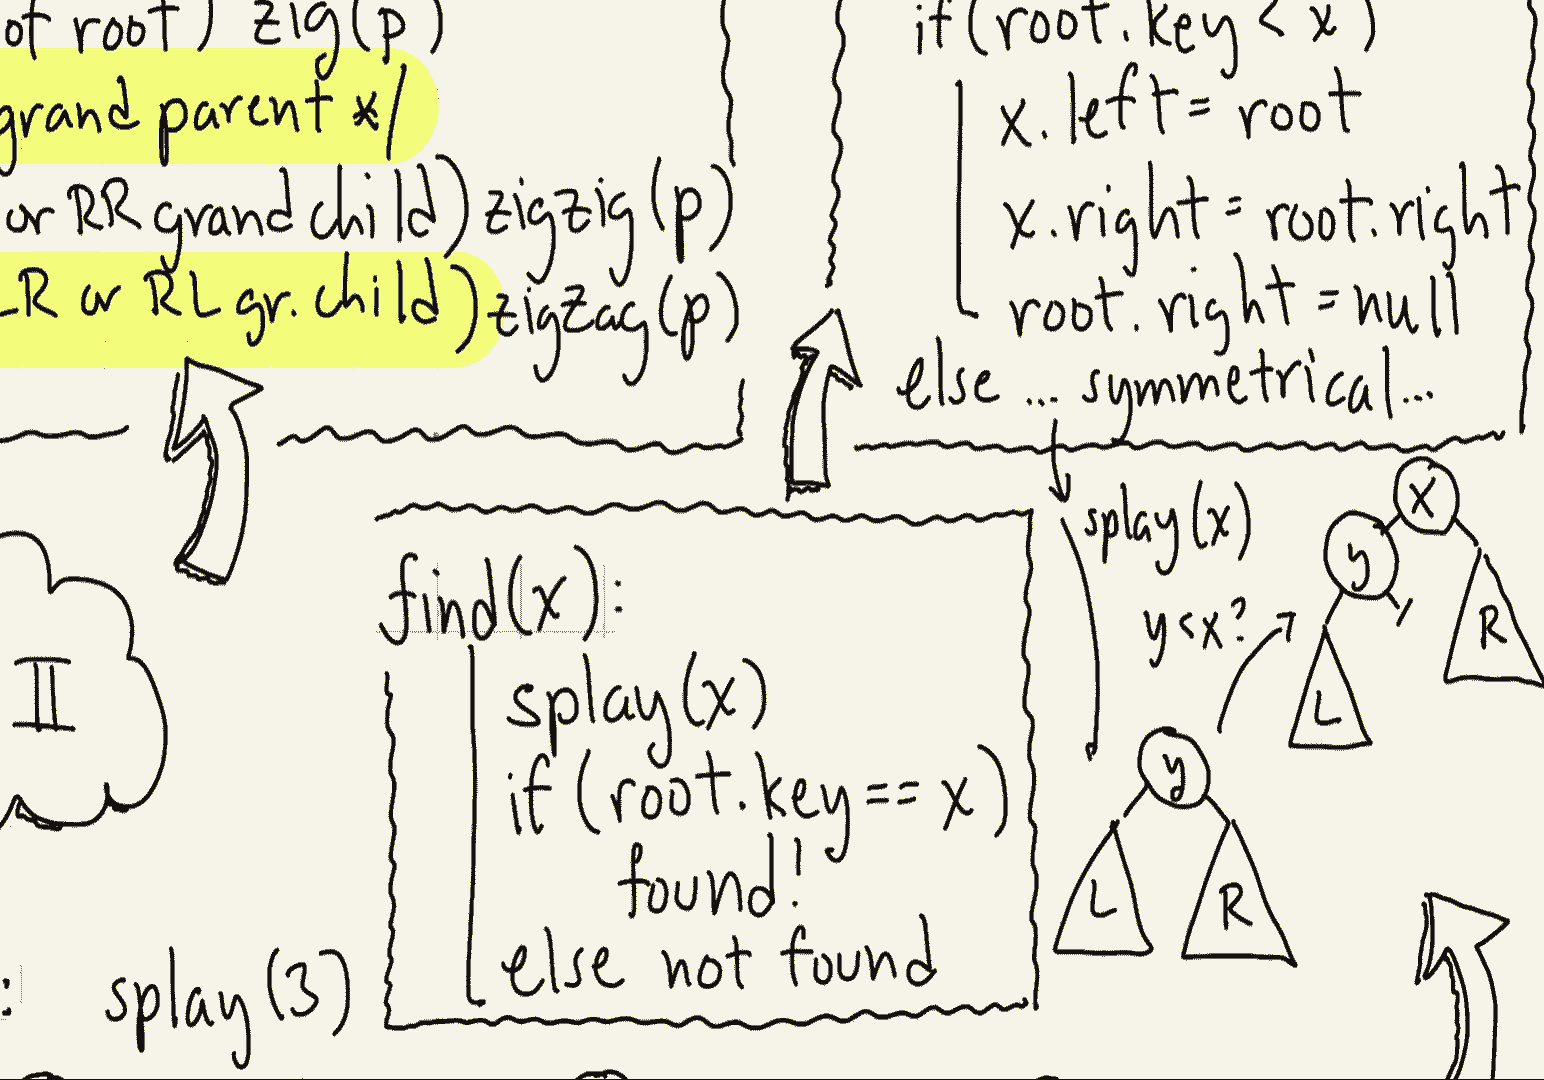 ot root) zig(p)
grand parent */
or RR grand child) zigzig(p)
LR or RL gr. child) zigzag(p)
if (root.key < x)
x.left = root
x.right = root.right
root.right = null
else ... symmetrical...
splay(x)
y < x?
X
y
L
R
y
L
R
II
find(x):
splay(x)
if (root.key == x)
found!
else not found
: splay(3)